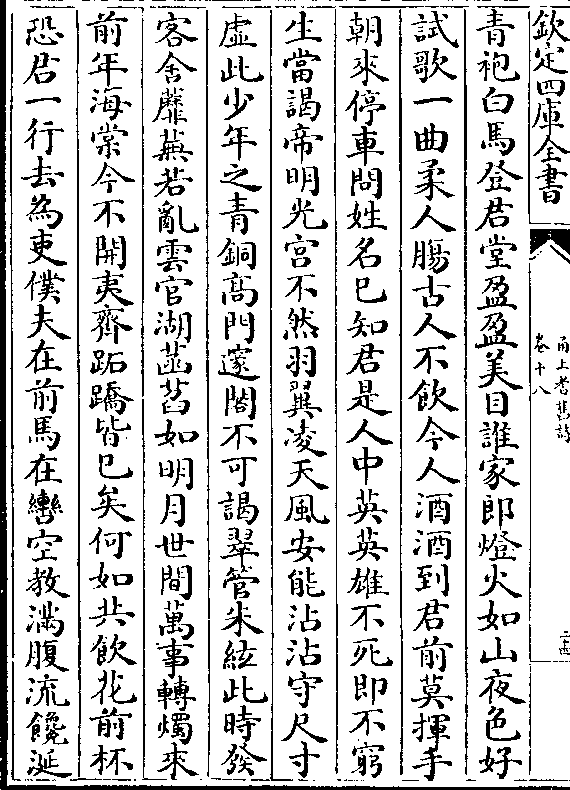 欽定四庫全書
甬上耆舊詩
卷十八
二十四
青袍白馬登君堂盈盈美目誰家郎燈火如山夜色好
試歌一曲柔人腸古人不飲今人酒酒到君前莫揮手
朝來停車問姓名已知君是人中英英雄不死即不窮
生當謁帝明光宫不然羽翼凌天風安能沾沾守尺寸
虛此少年之青銅高門邃閣不可謁翠管朱絃此時發
客舍蘼蕪若亂雲官湖菡萏如明月世間萬事轉燭來
前年海棠今不開夷齊跖蹻皆已矣何如共飲花前杯
恐君一行去為吏僕夫在前馬在轡空教滿腹流饞涎